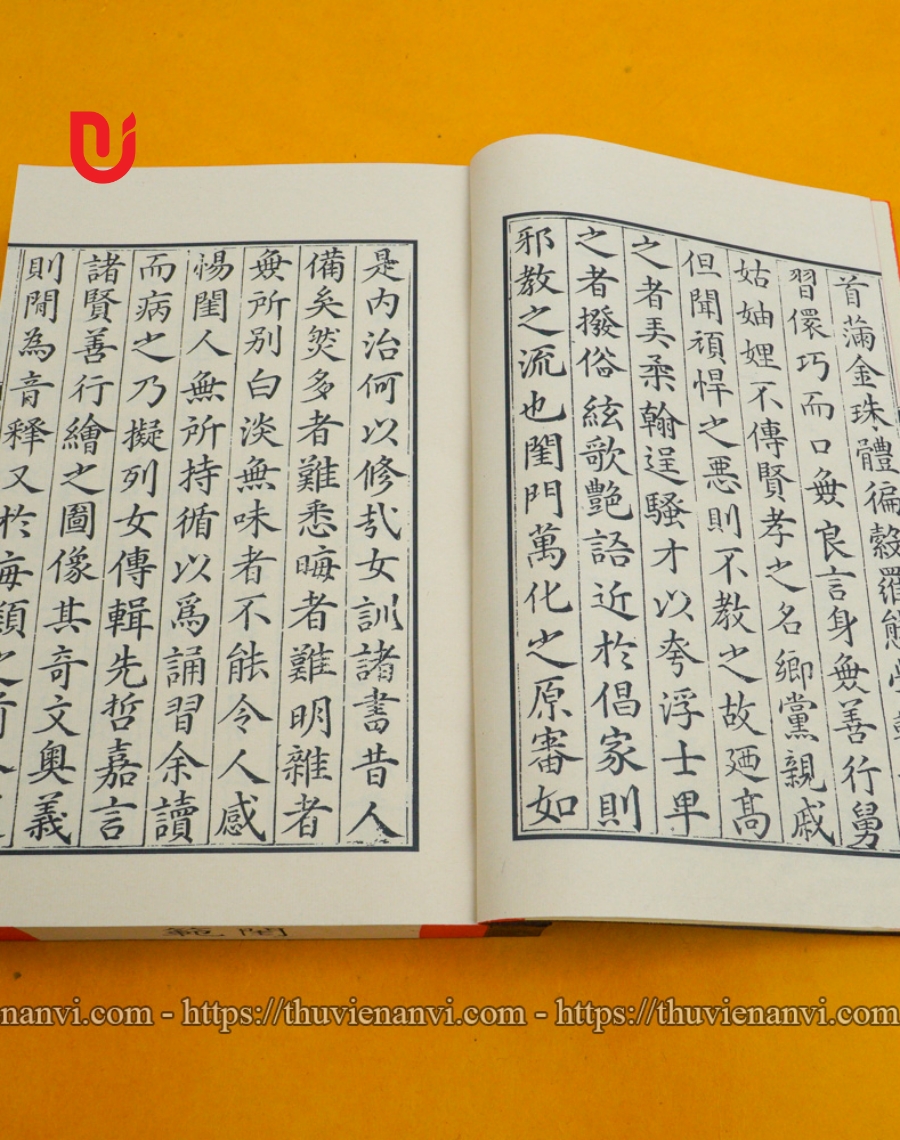 首滿金珠體徧縠羅態學
習儇巧而口無良言身無善行舅
姑妯娌不傳賢孝之名鄉黨親戚
但聞頑悍之惡則不教之故廼髙
之者弄柔翰逞騷才以夸浮士卑
之者撥俗絃歌艷語近於倡家則
邪教之流也閨門萬化之原審如
是內治何以修哉女訓諸書昔人
備矣然多者難悉晦者難明雜者
無所別白淡無味者不能令人感
惕閨人無所持循以爲誦習余讀
而病之乃擬列女傳輯先哲嘉言
諸賢善行繪之圖像其奇文奧義
則間為音釋又於每類之前
範閨
nanvi.com - https://thuvienanvi.com - https://thuvienanvi.com